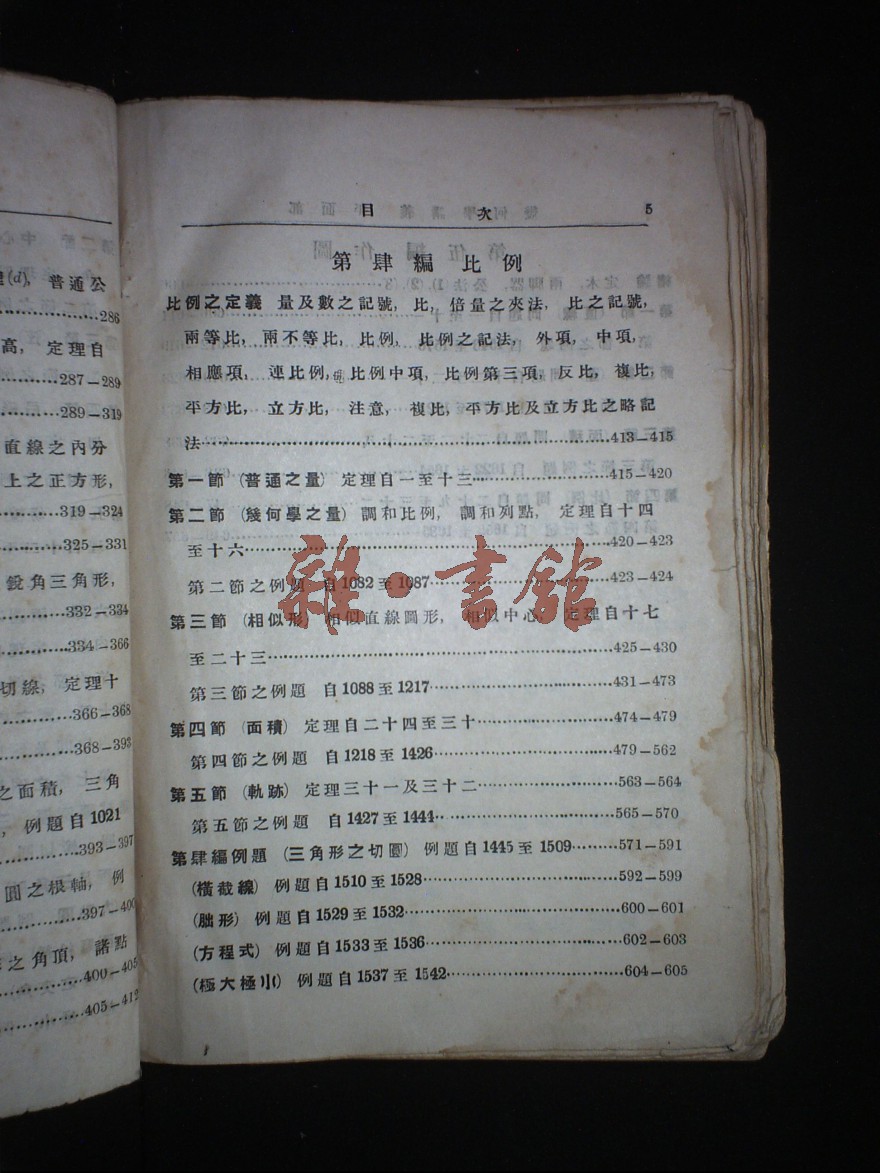 (a), 普通公
286
高, 定理自
287—289
289—319
直線之內分
上之正方形,
319—324
325—331
銳角三角形,
332—334
334—366
切線, 定理十
366—368
368—393
之面積, 三角
, 例題自1021
393—397
圓之根軸, 例
397—400
之角頂, 諸點
400—405
405—412
目 次 5
第肆編 比例
比例之定義 量及數之記號, 比, 倍量之夾法, 比之記號,
兩等比, 兩不等比, 比例, 比例之記法, 外項, 中項,
相應項, 連比例, 比例中項, 比例第三項, 反比, 複比,
平方比, 立方比, 注意, 複比, 平方比及立方比之略記
法……413—415
第一節 (普通之量) 定理自一至十三……415—420
第二節 (幾何學之量) 調和比例, 調和列點, 定理自十四
至十六……420—423
第二節之例題 自1082至1087……423—424
第三節 (相似形) 相似直線圖形, 相似中心, 定理自十七
至二十三……425—430
第三節之例題 自1088至1217……431—473
第四節 (面積) 定理自二十四至三十……474—479
第四節之例題 自1218至1426……479—562
第五節 (軌跡) 定理三十一及三十二……563—564
第五節之例題 自1427至1444……565—570
第肆編例題 (三角形之切圓) 例題自1445至1509……571—591
(橫截線) 例題自1510至1528……592—599
(朏形) 例題自1529至1532……600—601
(方程式) 例題自1533至1536……602—603
(極大極小) 例題自1537至1542……604—605
雜·書館